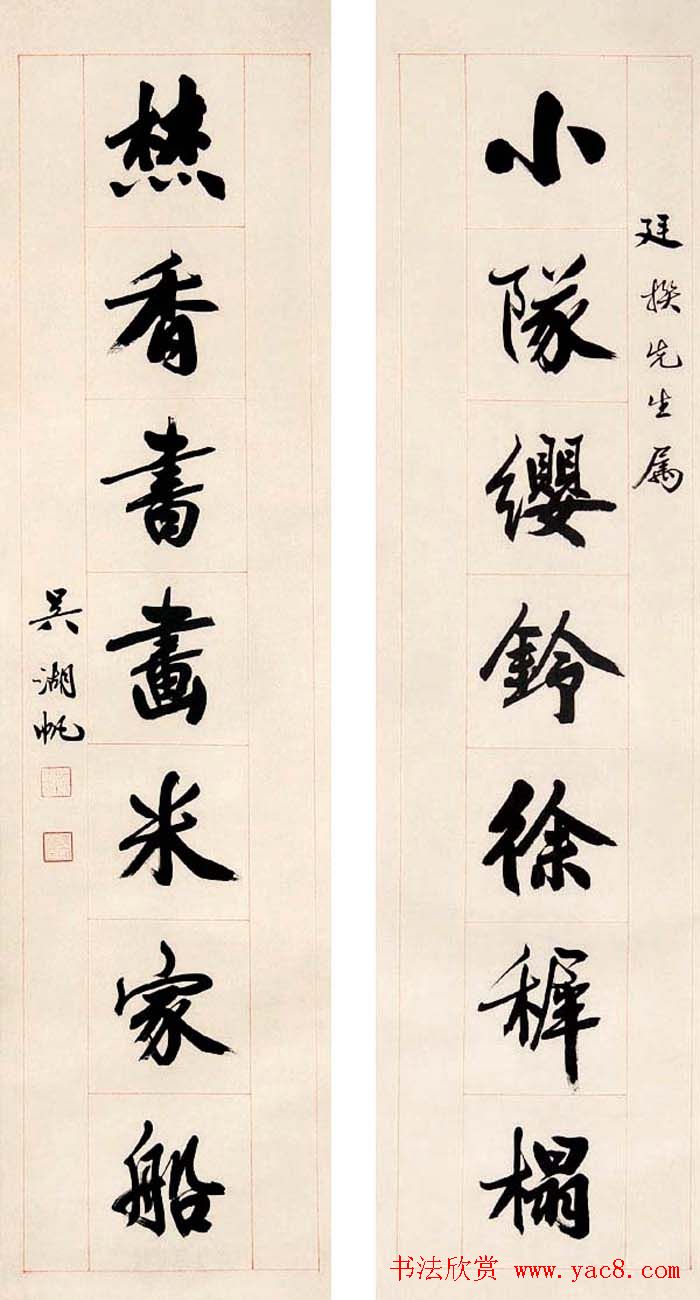 廷揆先生属
小隊纓鈴徐穉榻
焚香書畫米家船
吳湖帆
书法欣赏 www.yac8.com